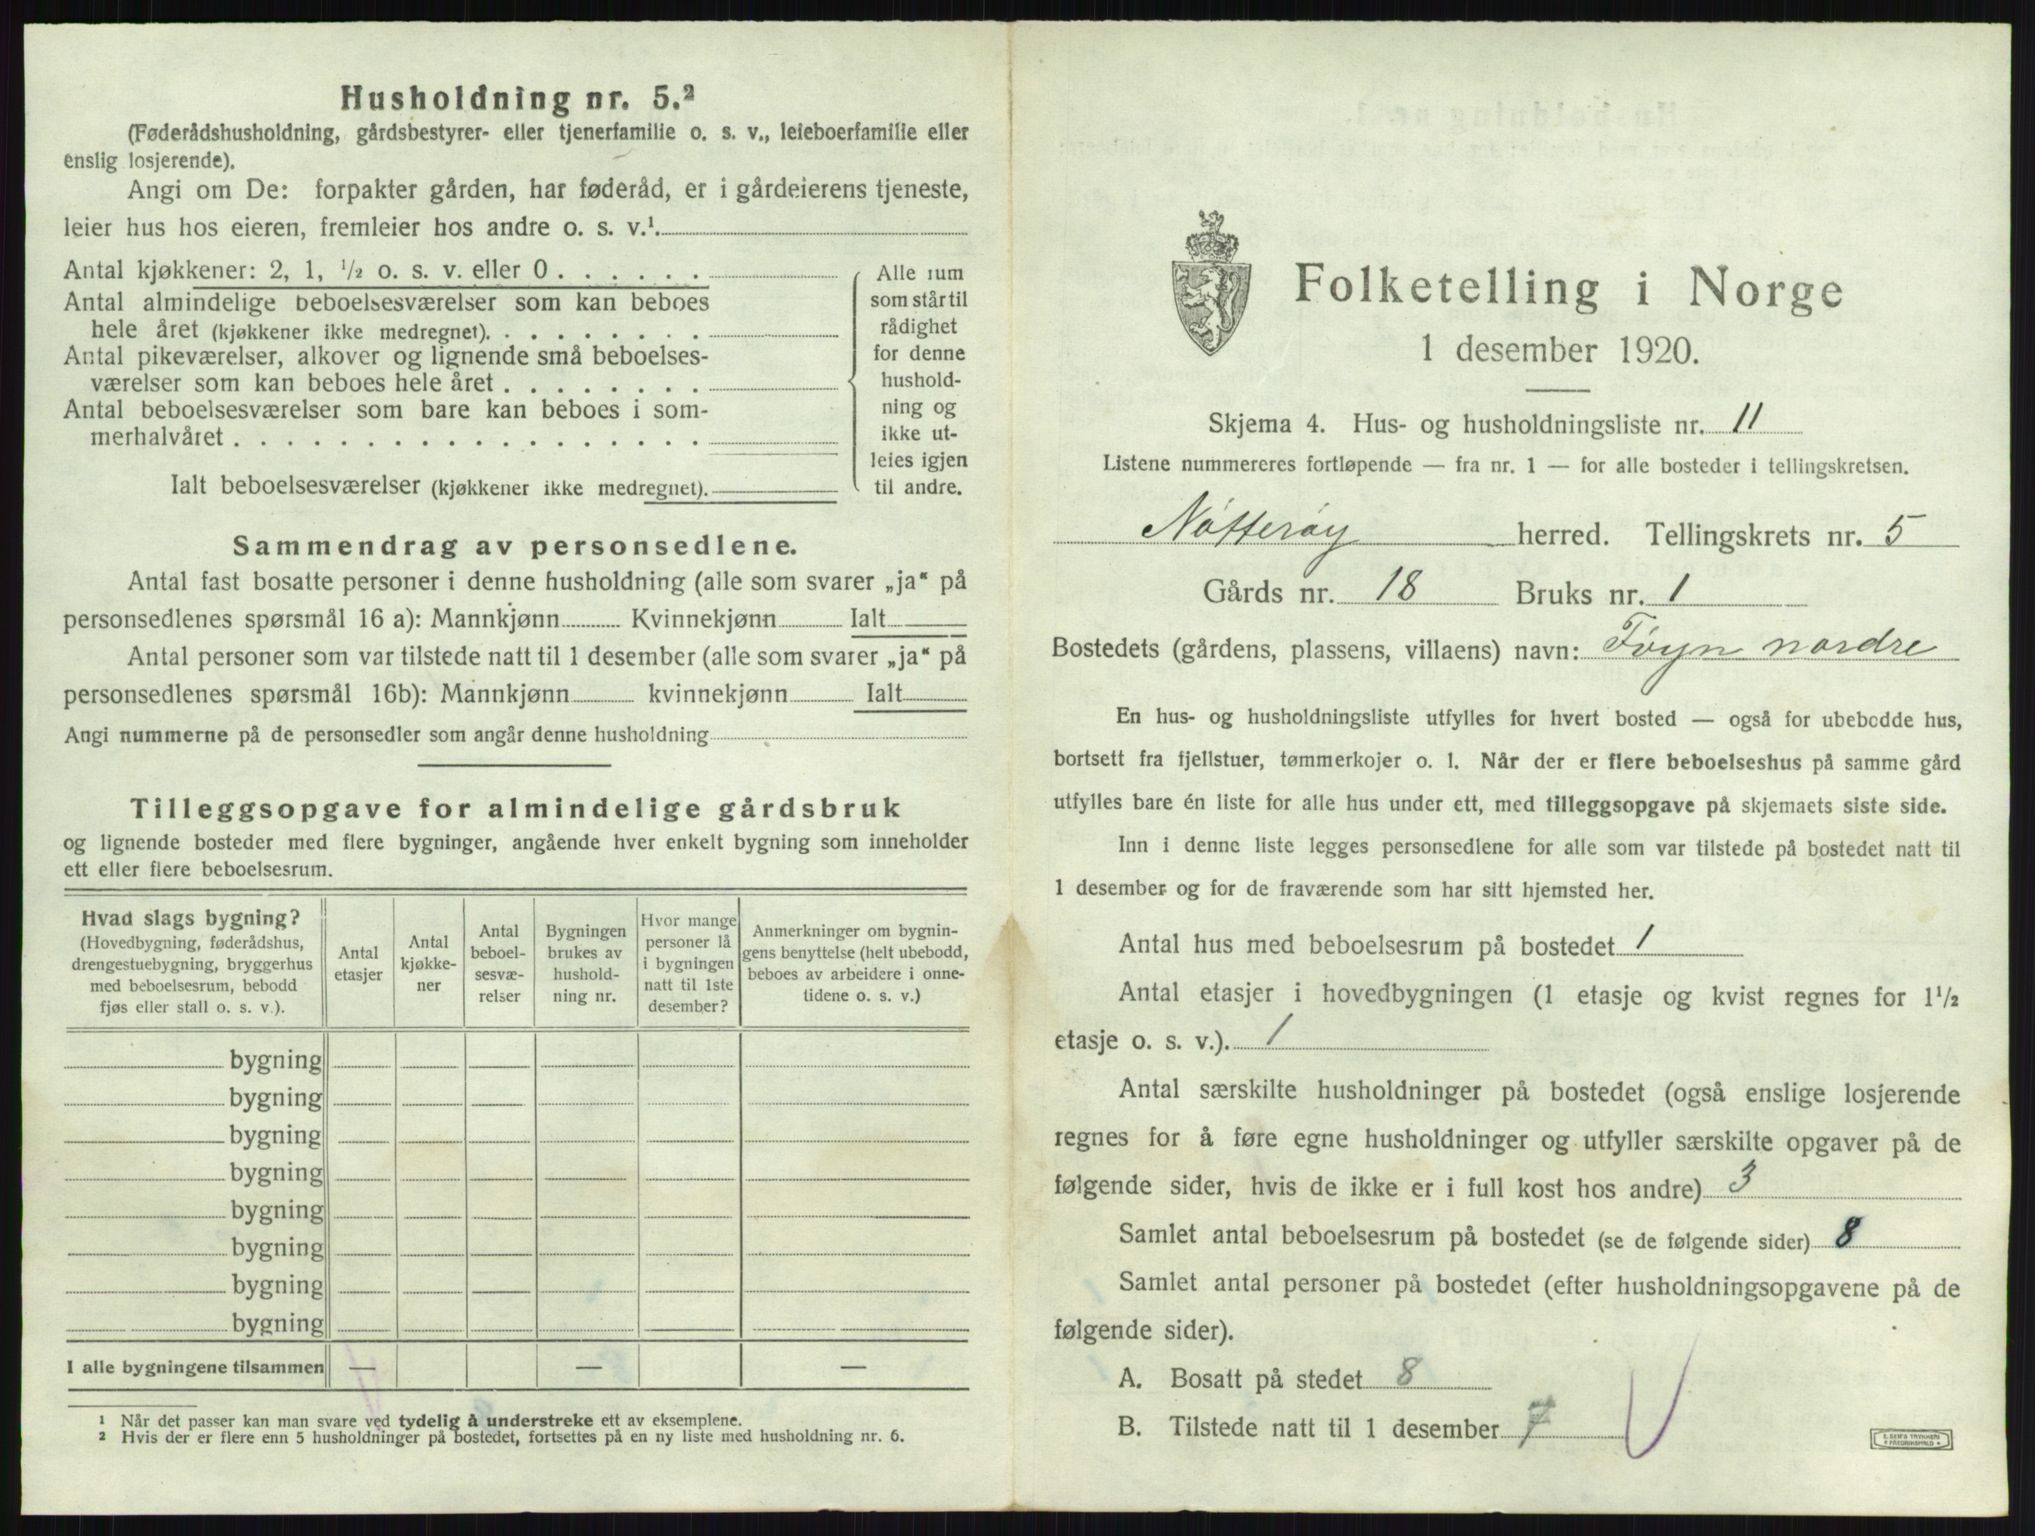 Husholdning nr. 5.²
(Føderådshusholdning, gårdsbestyrer- eller tjenerfamilie o. s. v., leieboerfamilie eller
enslig losjerende).
Angi om De: forpakter gården, har føderåd, er i gårdeierens tjeneste,
leier hus hos eieren, fremleier hos andre o. s. v.¹.
Antal kjøkkener: 2, 1, ½ o. s. v. eller 0 . . . . . .
Antal almindelige beboelsesværelser som kan beboes
hele året (kjøkkener ikke medregnet). . . . . . . . .
Antal pikeværelser, alkover og lignende små beboelses-
værelser som kan beboes hele året . . . . . . . .
Antal beboelsesværelser som bare kan beboes i som-
merhalvåret . . . . . . . . . . . . . . . . . .
Ialt beboelsesværelser (kjøkkener ikke medregnet).
Alle rum
som står til
rådighet
for denne
hushold-
ning og
ikke ut-
leies igjen
til andre.
Sammendrag av personsedlene.
Antal fast bosatte personer i denne husholdning (alle som svarer „ja“ på
personsedlenes spørsmål 16 a): Mannkjønn Kvinnekjønn Ialt
Antal personer som var tilstede natt til 1 desember (alle som svarer „ja“ på
personsedlenes spørsmål 16b): Mannkjønn kvinnekjønn Ialt
Angi nummerne på de personsedler som angår denne husholdning
Tilleggsopgave for almindelige gårdsbruk
og lignende bosteder med flere bygninger, angående hver enkelt bygning som inneholder
ett eller flere beboelsesrum.
Hvad slags bygning?
(Hovedbygning, føderådshus,
drengestuebygning, bryggerhus
med beboelsesrum, bebodd
fjøs eller stall o. s. v.).
Antal
etasjer
Antal
kjøkke-
ner
Antal
beboel-
sesvæ-
relser
Bygningen
brukes av
hushold-
ning nr.
Hvor mange
personer lå
i bygningen
natt til 1ste
desember?
Anmerkninger om bygnin-
gens benyttelse (helt ubebodd,
beboes av arbeidere i onne-
tidene o. s. v.)
bygning
bygning
bygning
bygning
bygning
bygning
bygning
bygning
I alle bygningene tilsammen — — —
¹ Når det passer kan man svare ved tydelig å understreke ett av eksemplene.
² Hvis der er flere enn 5 husholdninger på bostedet, fortsettes på en ny liste med husholdning nr. 6.
Folketelling i Norge
1 desember 1920.
Skjema 4. Hus- og husholdningsliste nr. 11
Listene nummereres fortløpende — fra nr. 1 — for alle bosteder i tellingskretsen.
Nøtterøy herred. Tellingskrets nr. 5
Gårds nr. 18 Bruks nr. 1
Bostedets (gårdens, plassens, villaens) navn: Føyn nordre
En hus- og husholdningsliste utfylles for hvert bosted — også for ubebodde hus,
bortsett fra fjellstuer, tømmerkojer o. l. Når der er flere beboelseshus på samme gård
utfylles bare én liste for alle hus under ett, med tilleggsopgave på skjemaets siste side.
Inn i denne liste legges personsedlene for alle som var tilstede på bostedet natt til
1 desember og for de fraværende som har sitt hjemsted her.
Antal hus med beboelsesrum på bostedet 1
Antal etasjer i hovedbygningen (1 etasje og kvist regnes for 1½
etasje o. s. v.). 1
Antal særskilte husholdninger på bostedet (også enslige losjerende
regnes for å føre egne husholdninger og utfyller særskilte opgaver på de
følgende sider, hvis de ikke er i full kost hos andre) 3
Samlet antal beboelsesrum på bostedet (se de følgende sider) 8
Samlet antal personer på bostedet (efter husholdningsopgavene på de
følgende sider).
A. Bosatt på stedet 8
B. Tilstede natt til 1 desember 7